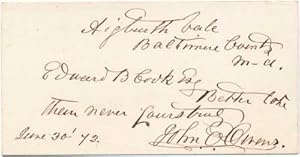 Aigburth vale
Baltimore County
M-d.
Edward B Cook Esq
Better late
than never Yours truly
John E Owens.
June 30' 72.